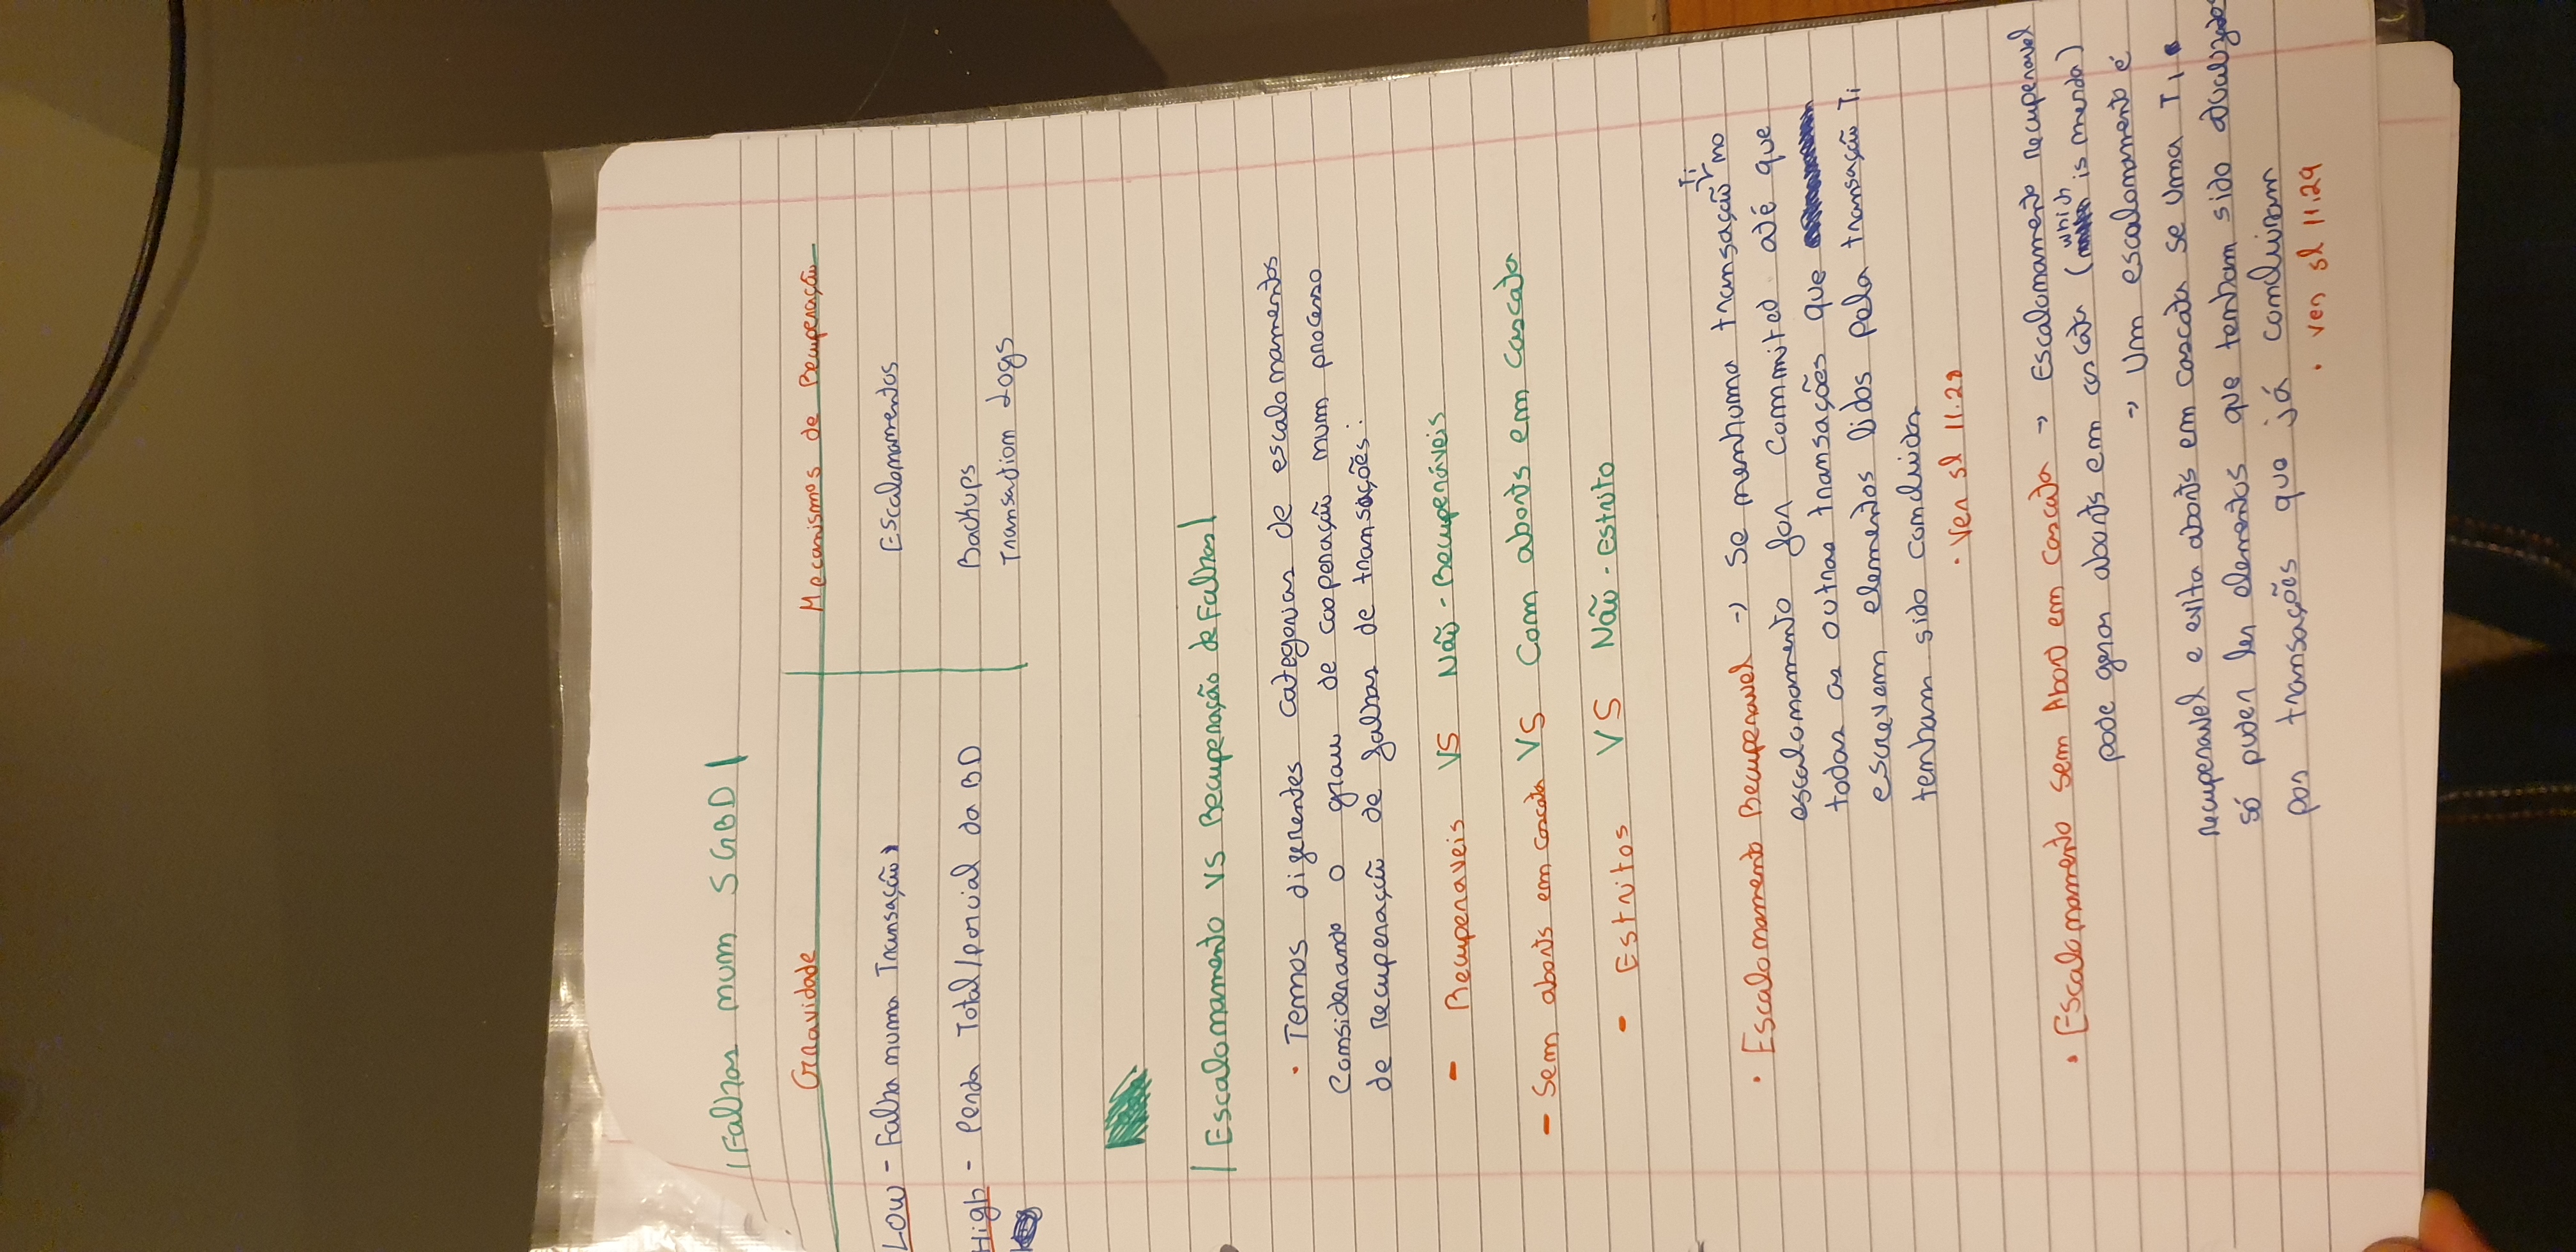 |Falhas num SGBD|
Gravidade Mecanismos de Recuperação
Low - Falha numa Transação Escalonamentos
High - Perda Total/parcial da BD Backups
Transaction Logs
|Escalonamento VS Recuperação de Falhas|
• Temos diferentes categorias de escalonamentos
Considerando o grau de cooperação num processo
de recuperação de falhas de transações:
- Recuperaveis VS Não-Recuperáveis
- Sem aborts em cascata VS Com aborts em cascata
- Estritos VS Não-Estrito
Ti
• Escalonamento Recuperavel → Se nenhuma transação no
escalonamento for Commited até que
todas as outras transações que
escrevem elementos lidos pela transação Ti
tenham sido concluidas
• Ver sl 11.28
• Escalonamento sem Abort em Cascata → Escalonamento recuperavel
pode gerar aborts em cascata (which is merda)
→ Um escalonamento é
recuperavel e evita aborts em cascata se uma Ti
só puder ler elementos que tenham sido atualizados
por transações que já concluiram
• ver sl 11.29